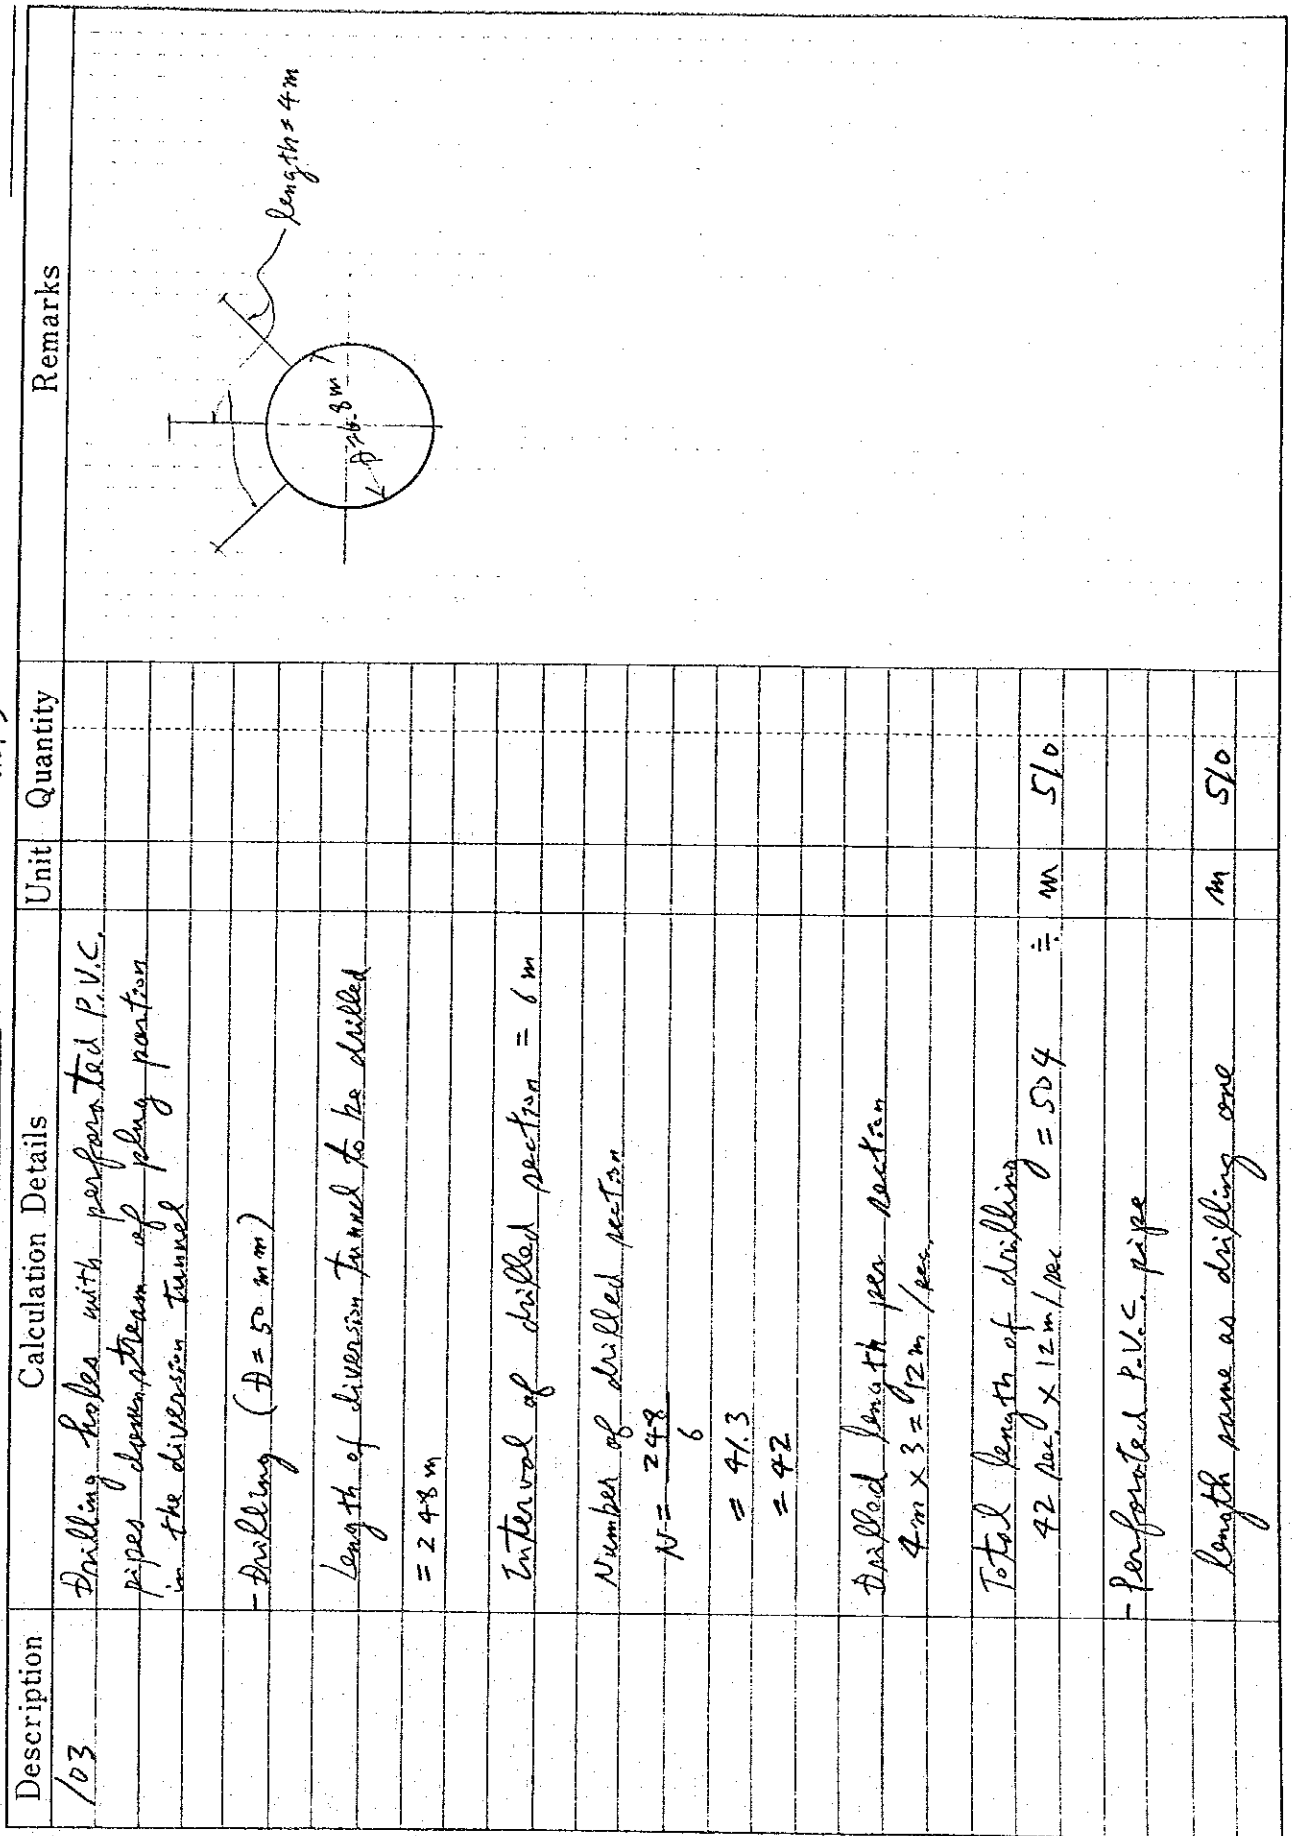 Description Calculation Details Unit Quantity Remarks
103 Drilling holes with perforated P.V.C.
pipes downstream of plug portion
in the diversion tunnel
- Drilling (D = 50 mm)
Length of diversion tunnel to be drilled
= 248 m
Interval of drilled section = 6 m
Number of drilled section
N = 248
6
= 41.3
= 42
Drilled length per section
4m × 3 = 12m/sec.
Total length of drilling
42 sec. × 12m/sec = 504 ≒ m 510
- Perforated P.V.C. pipe
length same as drilling one m 510
length = 4m
D=6.8m